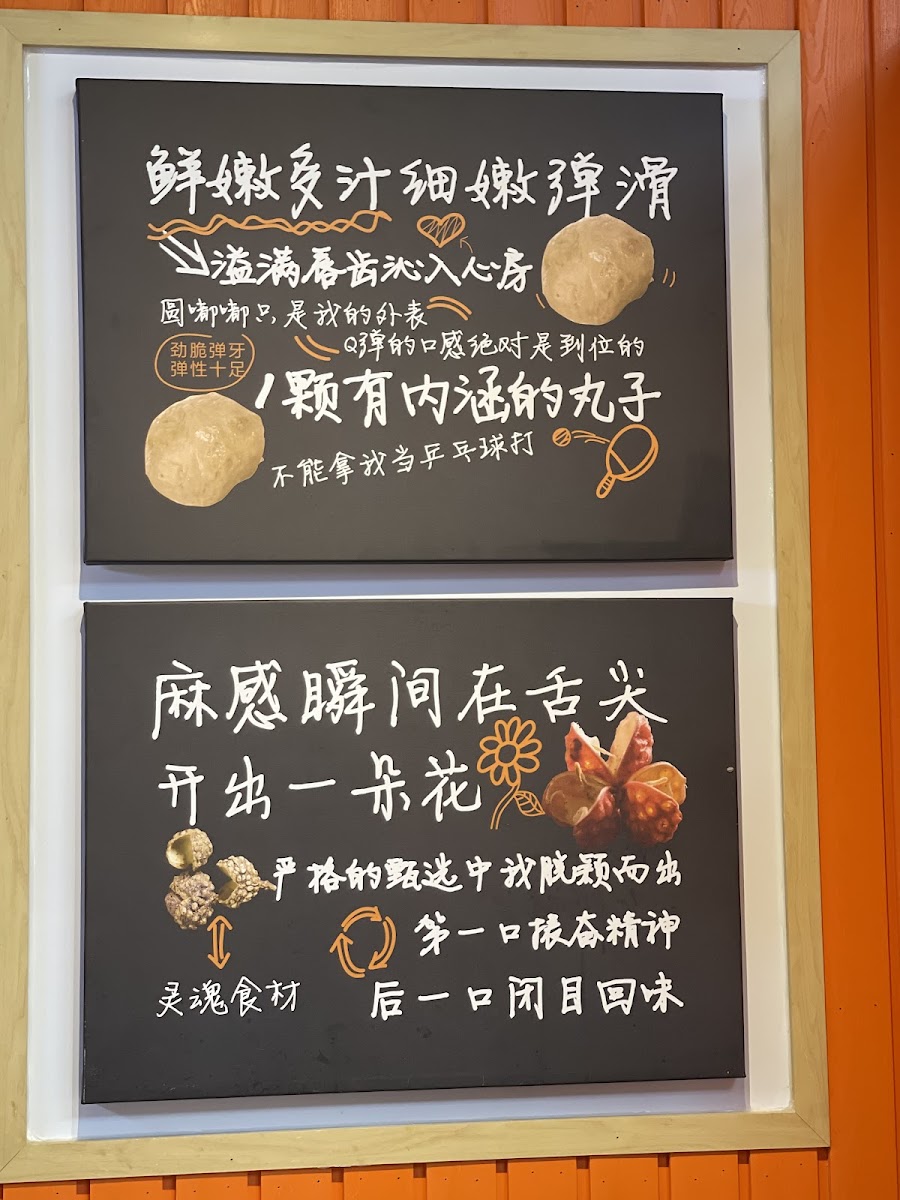 鲜嫩多汁细嫩弹滑
溢满唇齿沁入心房
圆嘟嘟只是我的外表
Q弹的口感绝对是到位的
劲脆弹牙
弹性十足
1颗有内涵的丸子
不能拿我当乒乓球打
麻感瞬间在舌尖
开出一朵花
严格的甄选中我脱颖而出
第一口振奋精神
灵魂食材
后一口闭目回味